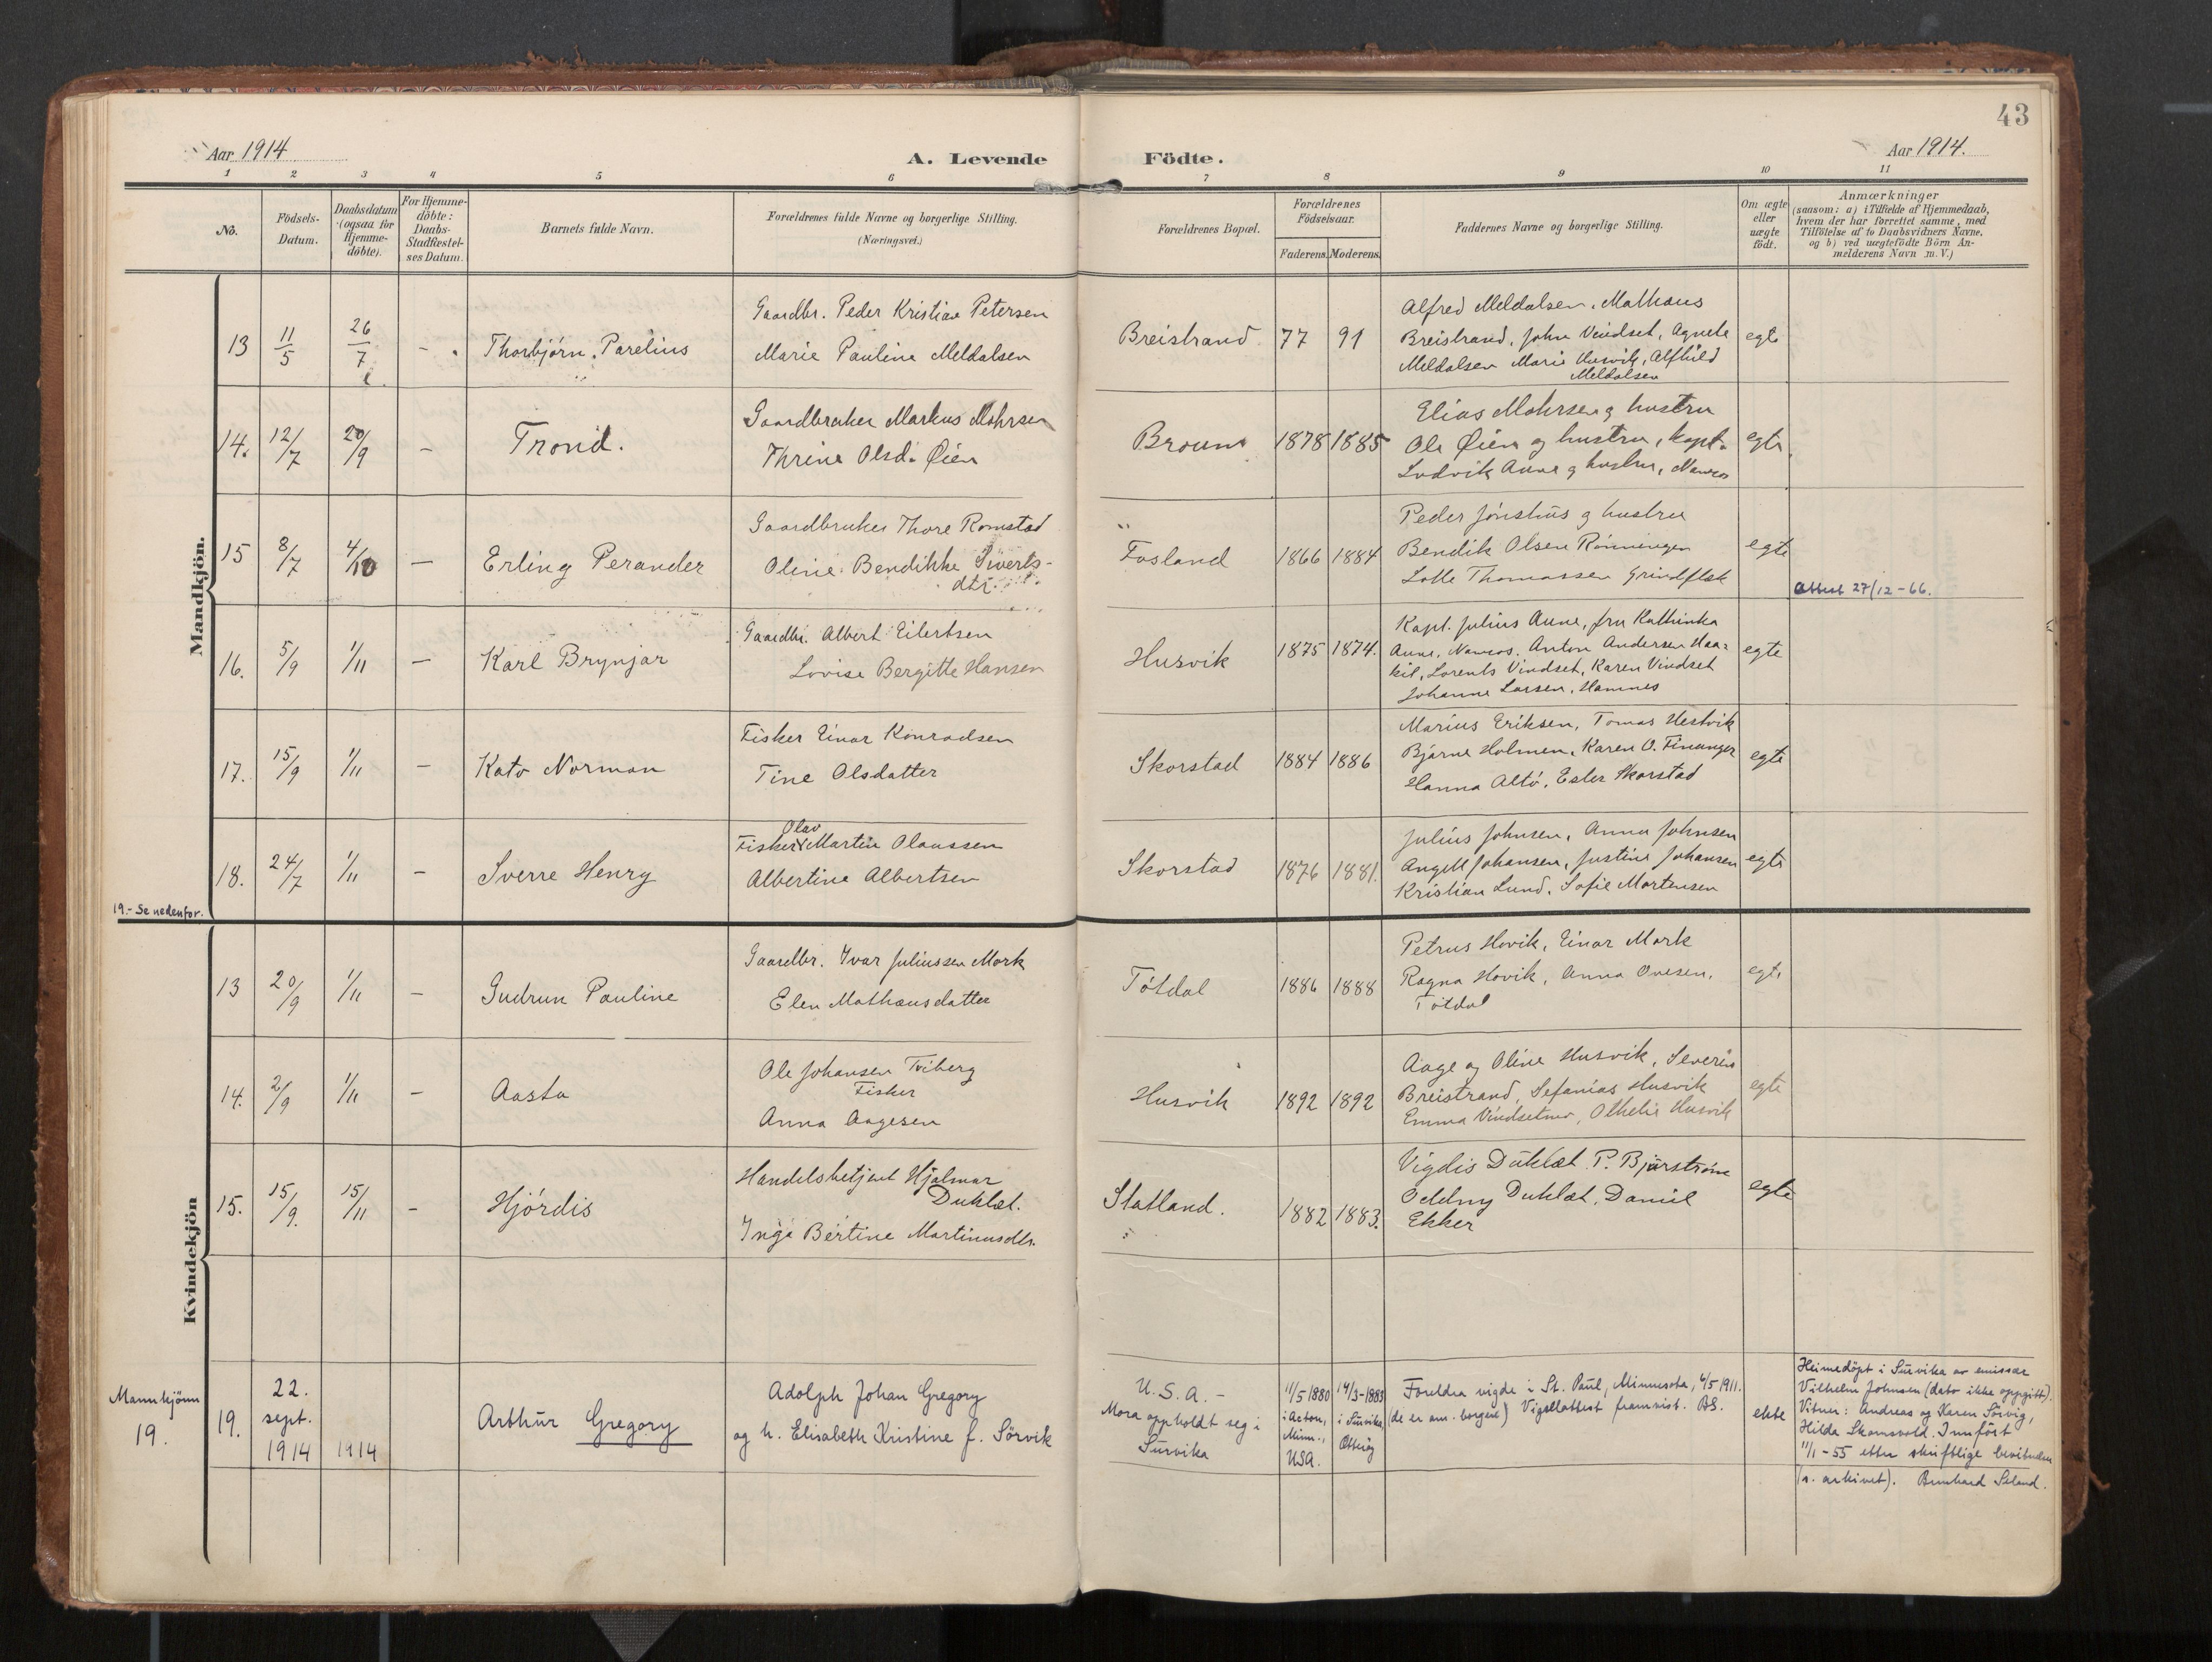 43
Aar 1914
A. Levende
Födte.
Aar 1914.
1 2 3 4 5 6 7 8 9 10 11
No.
Födsels-
Datum.
Daabsdatum
(ogsaa for
Hjemme-
döbte).
For Hjemme-
döbte:
Daabs-
Stadfæstel-
ses Datum.
Barnets fulde Navn.
Forældrenes fulde Navne og borgerlige Stilling.
(Næringsvei.)
Forældrenes Bopæl.
Forældrenes
Födselsaar.
Faderens. Moderens.
Faddernes Navne og borgerlige Stilling.
Om ægte
eller
uægte
födt.
Anmærkninger
(saasom: a) i Tilfælde af Hjemmedaab,
hvem der har forrettet samme, med
Tilföielse af to Daabsvidners Navne,
og b) ved uægtefödte Börn An-
melderens Navn m. V.)
Mandkjön.
13 11/5 26/7 - Thorbjørn Parelius
Gaardbr. Peder Kristian Petersen
Marie Pauline Meldalsen
Breistrand 77 91
Alfred Meldalsen, Mathæus
Breistrand, John Vindset, Agnete
Meldalsen Marie Husvik, Alfhild
Meldalsen
egte
14. 12/7 20/9 - Trond.
Gaardbruker Markus Mohrsen
Thrine Olsd. Øien
Brouns 1878 1885
Elias Mohrsen og hustru
Ole Øien og hustru, kapt.
Ludvik Aune og hustru, Namsos
egte
15 8/7 4/10 - Erling Perander
Gaardbruker Thore Romstad
Oline Bendikke Siverts-
dtr.
Fosland 1866 1884
Peder Jönshus og hustru
Bendik Olsen Rönningen
Lotte Thomassen Grindflek
egte
Attest 27/12-66.
16. 5/9 1/11 - Karl Brynjar
Gaardbr. Albert Eilertsen
Lovise Bergitte Hansen
Husvik 1875 1874.
Kapt. Julius Aune, fru Kathinka
Aune, Namsos, Anton Andersen Haa-
kil, Lorents Vindset, Karen Vindset
Johanne Larsen, Hamnes
egte
17. 15/9 1/11 - Kato Norman
Fisker Einar Konradsen
Tine Olsdatter
Skorstad 1884 1886
Marius Eriksen, Tomas Hestvik
Bjarne Holmen, Karen O. Finanger
Hanna Altö, Ester Skorstad
egte
18. 24/7 1/11 - Sverre Henry
Olav
Fisker Martin Olaussen
Albertine Albertsen
Skorstad 1876 1881.
Julius Johnsen, Anna Johnsen
Angell Johansen, Justine Johansen
Kristian Lund, Sofie Mortensen
egte
19.- Se nedenfor.
Kvindekjön
13 20/9 1/11 - Gudrun Pauline
Gaardbr. Ivar Juliussen Mork
Elen Mathæusdatter
Tötdal 1886 1888
Petrus Hovik, Einar Mork
Ragna Hovik, Anna Ovesen,
Tötdal
egte
14. 2/9 1/11 - Aasta
Ole Johansen Tviberg
Fisker
Anna Aagesen
Husvik 1892 1892
Aage og Oline Husvik, Severin
Breistrand, Sefanias Husvik
Emma Vindsetmo, Othelie Husvik
egte
15. 15/9. 15/11 - Hjördis
Handelsbetjent Hjalmar
Duklæt.
Inga Bertine Martinusdtr.
Statland. 1882 1883.
Vigdis Duklæt P. Bjørstrøm
Oddny Duklæt, Daniel
Ekker
egte
Mannkjønn
19.
19. 22.
sept.
1914 1914
Arthur Gregory
Adolph Johan Gregory
og h. Elisabeth Kristine f. Sörvik
U.S.A. -
Mora oppholdt seg i
Survika
11/5 1880
i Acton,
Minn.,
USA.
14/3-1883
i Survika,
Otterøy
Foreldra vigde i St. Paul, Minnesota, 6/5 1911.
(de er am. borgere) Vigselattest framvist. BS.
ekte
Heimedöpt i Survika av emissær
Vilhelm Johnsen (dato ikke oppgitt).
Vitner: Andreas og Karen Sörvig,
Hilda Skomsvold. Innfört
11/1-55 etter skriftlige bevitnelser
(s. arkivet). Bernhard Seland.